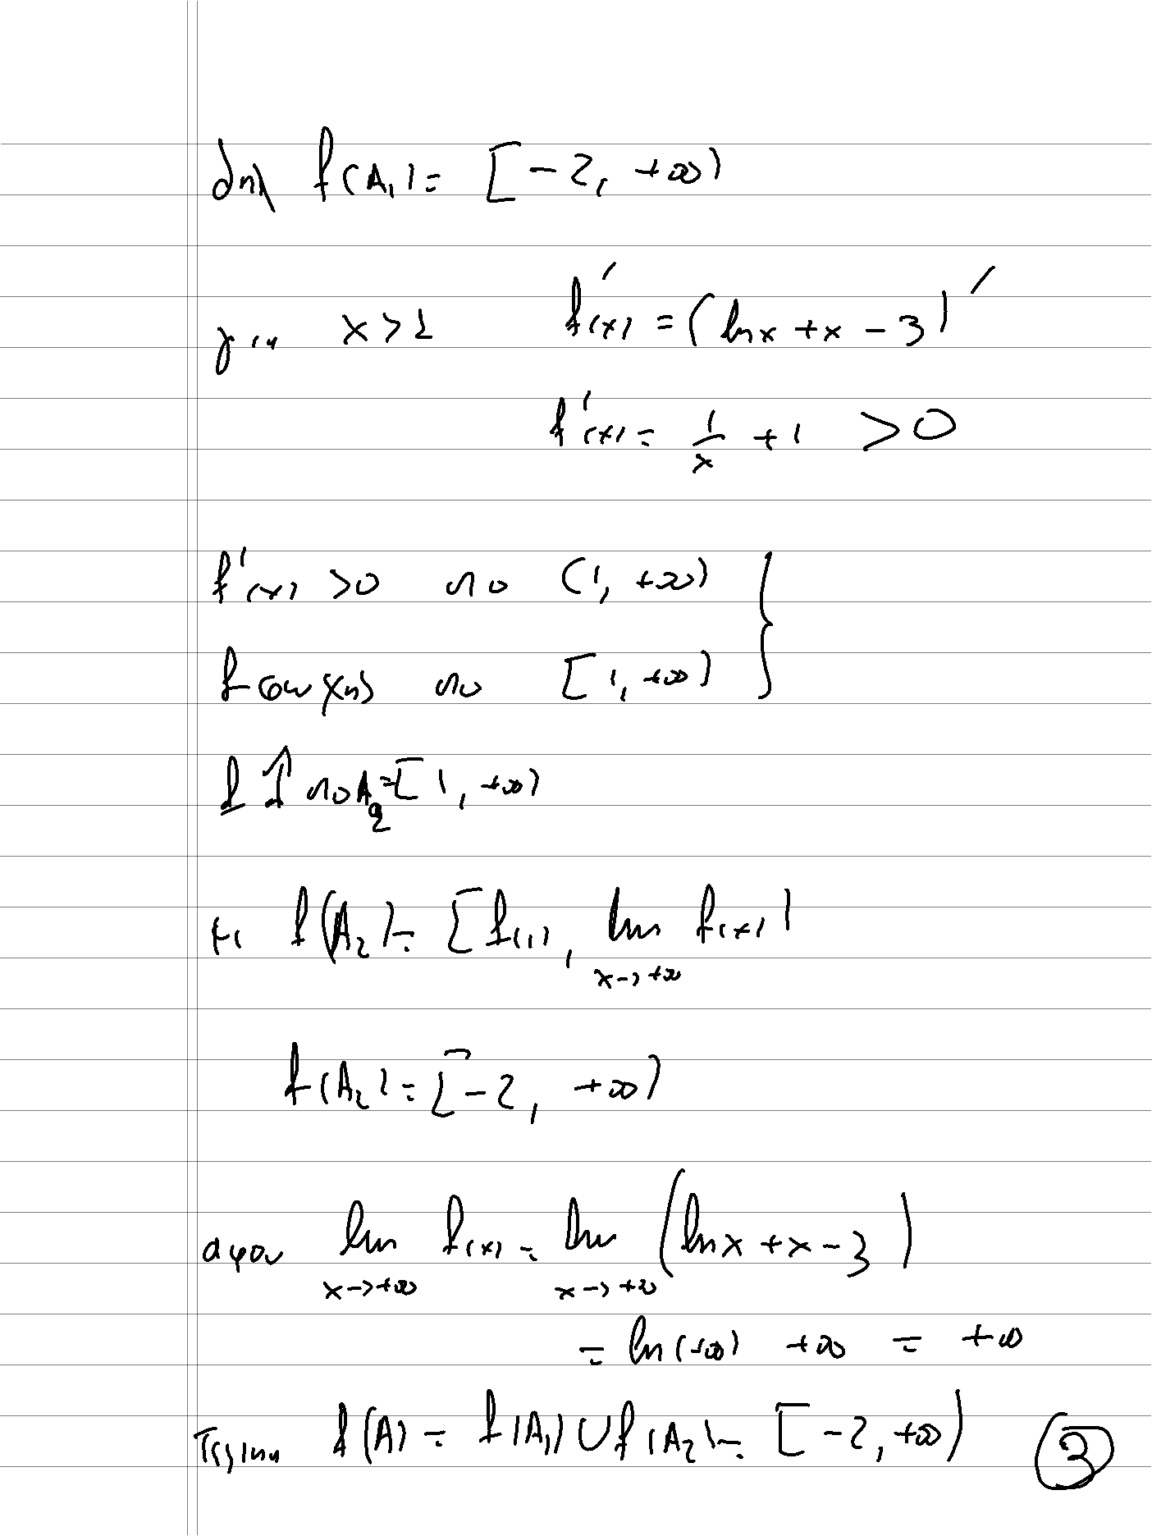 δηλ f(A₁) = [-2, +∞)
για x>1 f'(x) = (lnx + x - 3)'
f'(x) = 1/x + 1 > 0
f'(x) > 0 στο (1, +∞) }
f συνεχης στο [1, +∞)
f ↑ στο A₂=[1, +∞)
κι f(A₂) = [f(1), lim x→+∞ f(x))
f(A₂) = [-2, +∞)
αφου lim x→+∞ f(x) = lim x→+∞ (lnx + x - 3)
= ln(+∞) +∞ = +∞
Τελικα f(A) = f(A₁) ∪ f(A₂) = [-2, +∞) ③